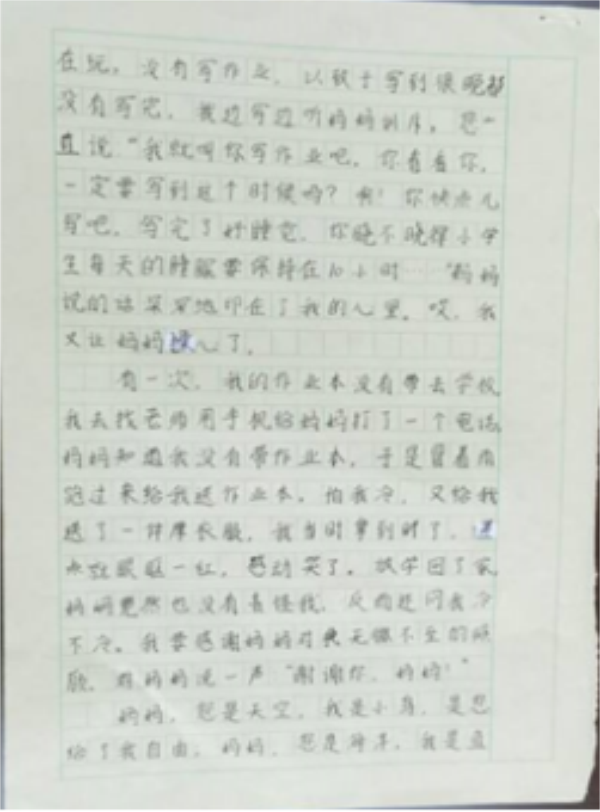 在玩。没有写作业，以致于写到很晚都
没有写完，我边写边听妈妈训斥。您一
直说“我就叫你写作业吧，你看看你，
一定要写到这个时候吗？我！你快点儿
写吧，写完了好睡觉，你晓不晓得小学
生每天的睡眠要保持在10小时…”妈妈
说的话深深地印在了我的心里。哎，我
又让妈妈操心了。
有一次，我的作业本没有带去学校
我去找老师用手机给妈妈打了一个电话，
妈妈知道我没有带作业本，于是冒着雨
跑过来给我送作业本，怕我冷，又给我
送了一件厚衣服，我当时拿到时了，
眼眶一红，感动哭了。放学回了家
妈妈竟然也没有责怪我，反而还问我冷
不冷。我要感谢妈妈对我无微不至的照
顾，对妈妈说一声“谢谢你，妈妈！”
妈妈，您是天空，我是小鸟，是您
给了我自由，妈妈，您是海洋，我是鱼